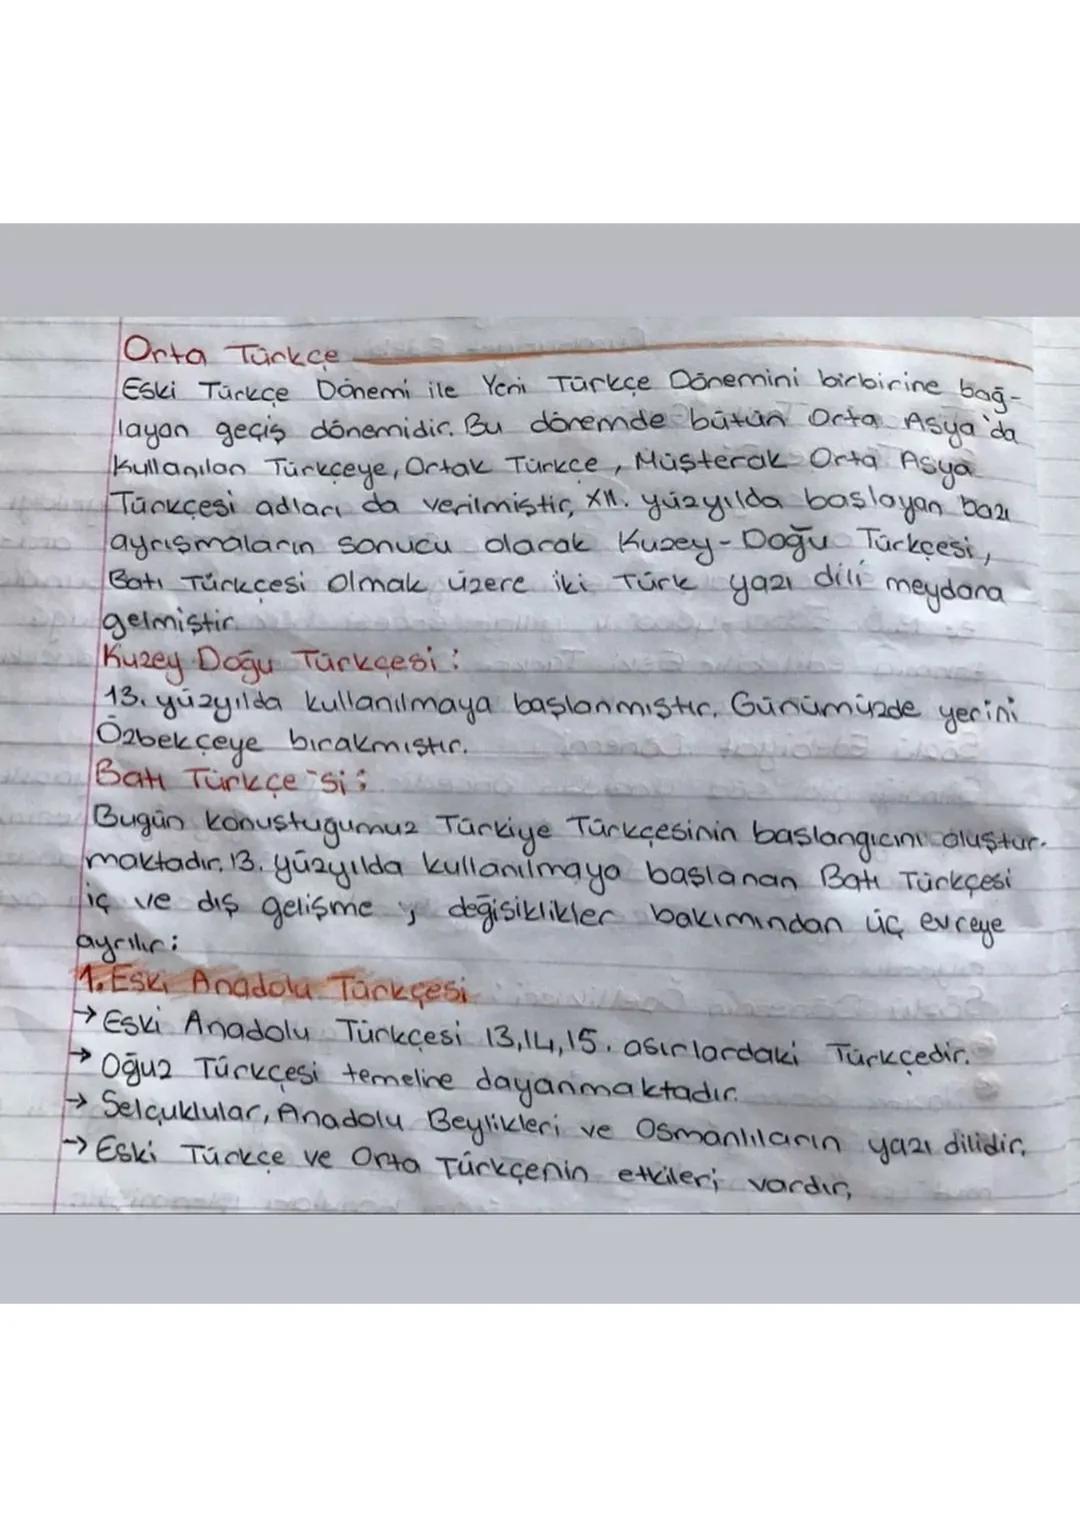 Orta Türkçe
Eski Türkçe Dönemi ile Yeni Türkçe Dönemini birbirine bağ-
layan geçiş dönemidir. Bu dönemde bütün Orta Asya'da
kullanılan Türkçeye, Ortak Türkçe, Müşterak Orta Asya
Türkçesi adları da verilmiştir, XII. yüzyılda başlayan bazı
ayrışmaların sonucu olarak Kuzey-Doğu Türkçesi,
Batı Türkçesi olmak üzere iki Türk yazı dili meydana
gelmiştir.
Kuzey Doğu Türkçesi:
13. yüzyılda kullanılmaya başlanmıştır. Günümüzde yerini
Özbekçeye bırakmıştır.
Batı Türkçe'si:
Bugün konuştuğumuz Türkiye Türkçesinin başlangıcını oluştur-
maktadır. 13. yüzyılda kullanılmaya başlanan Batı Türkçesi
iç ve dış gelişme, değişiklikler bakımından üç evreye
ayrılır:
1. Eski Anadolu Türkçesi
→ Eski Anadolu Türkçesi 13,14,15. asırlardaki Türkçedir.
→ Oğuz Türkçesi temeline dayanmaktadır.
→ Selçuklular, Anadolu Beylikleri ve Osmanlıların yazı dilidir.
→ Eski Türkçe ve Orta Türkçenin etkileri vardır,